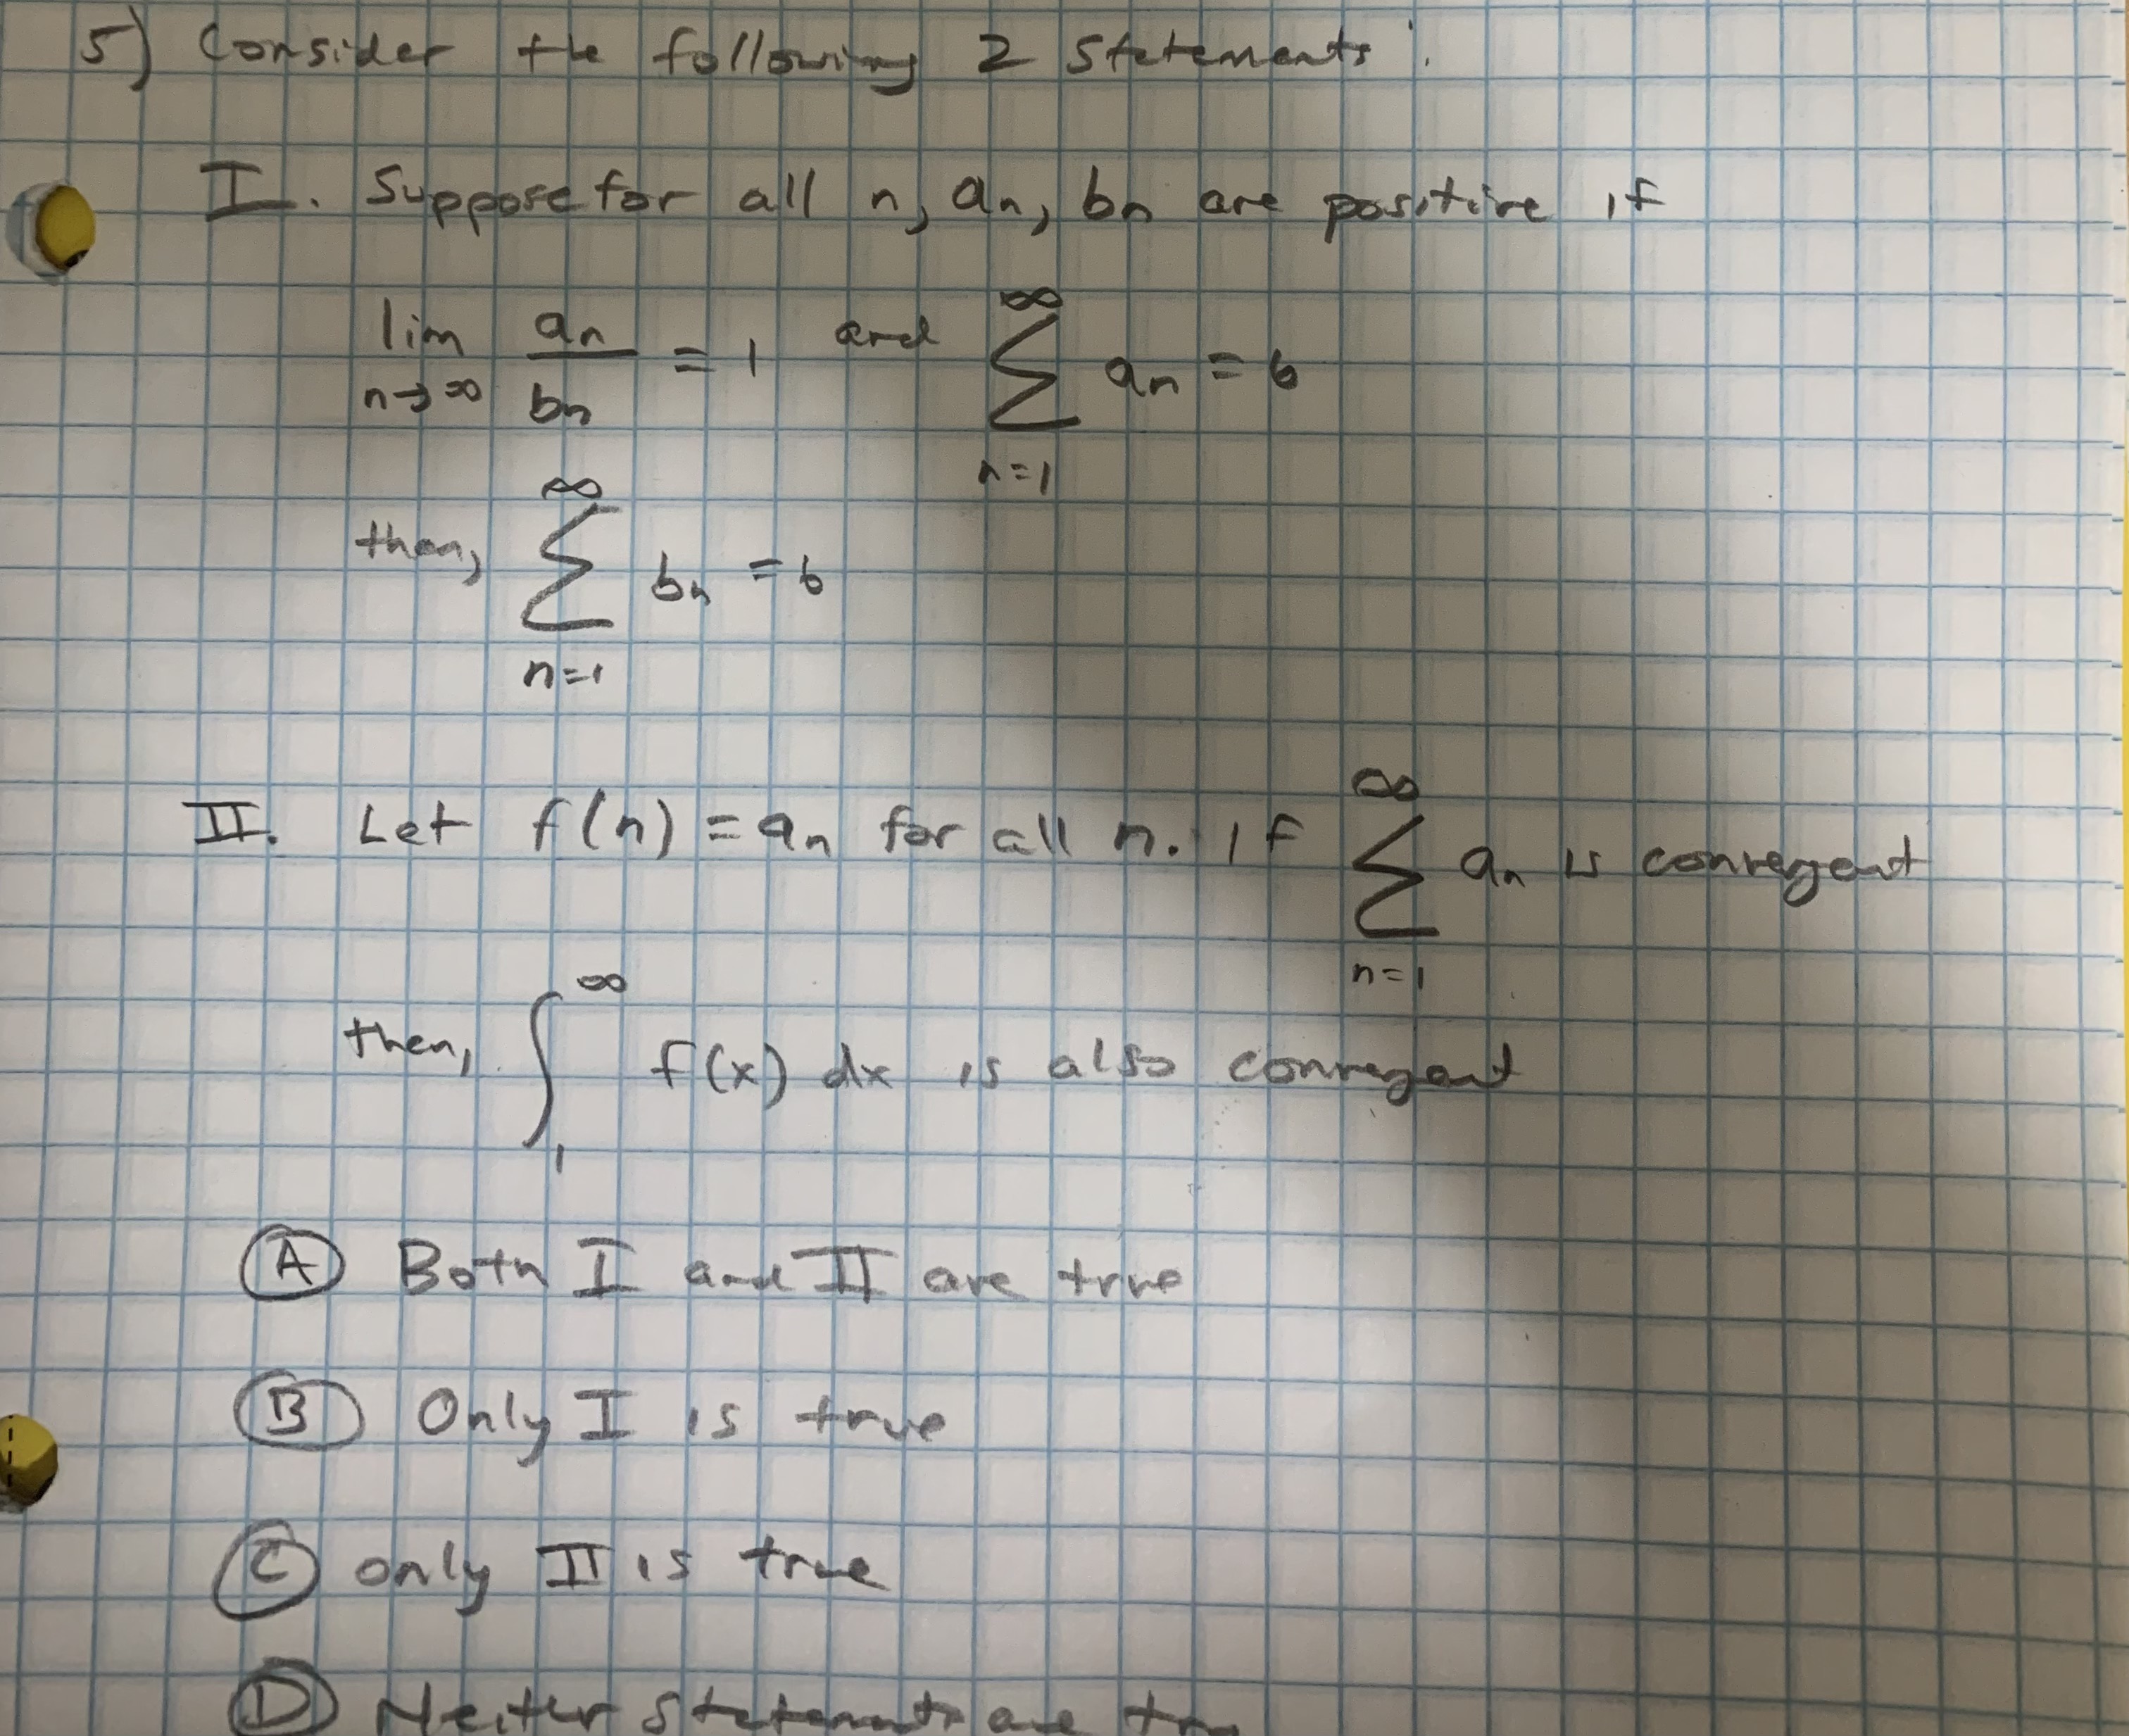 5) Consider the following 2 statements:
I. Suppose for all n, an, bn are positive if
lim n→∞ an/bn = 1 and ∞∑n=1 an = 6
then, ∞∑n=1 bn = 6
II. Let f(n) = an for all n. if ∞∑n=1 an is convergent
then, ∫1∞ f(x) dx is also convergent
(A) Both I and II are true
(B) Only I is true
(C) only II is true
(D) Neither statements are